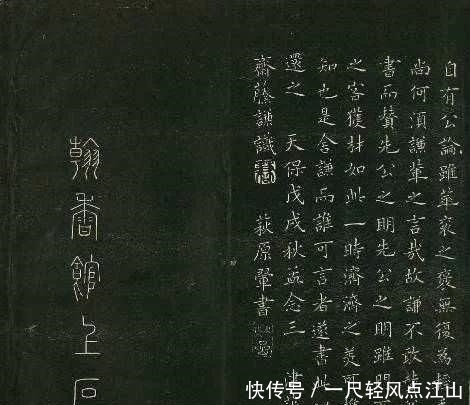 自有公論雖華袞之褒無復為
尚何湏謙輩之言哉故謙不敢
書而賛先公之明先公之明雖明
之客獲材如此一時濟濟之美可
知也是舍謙而誰可言者遂書此
還之 天保戊戌秋孟念三 津
齋藤謙識 萩原翬書
翰香館上石
快传号 / 一尺轻风点江山